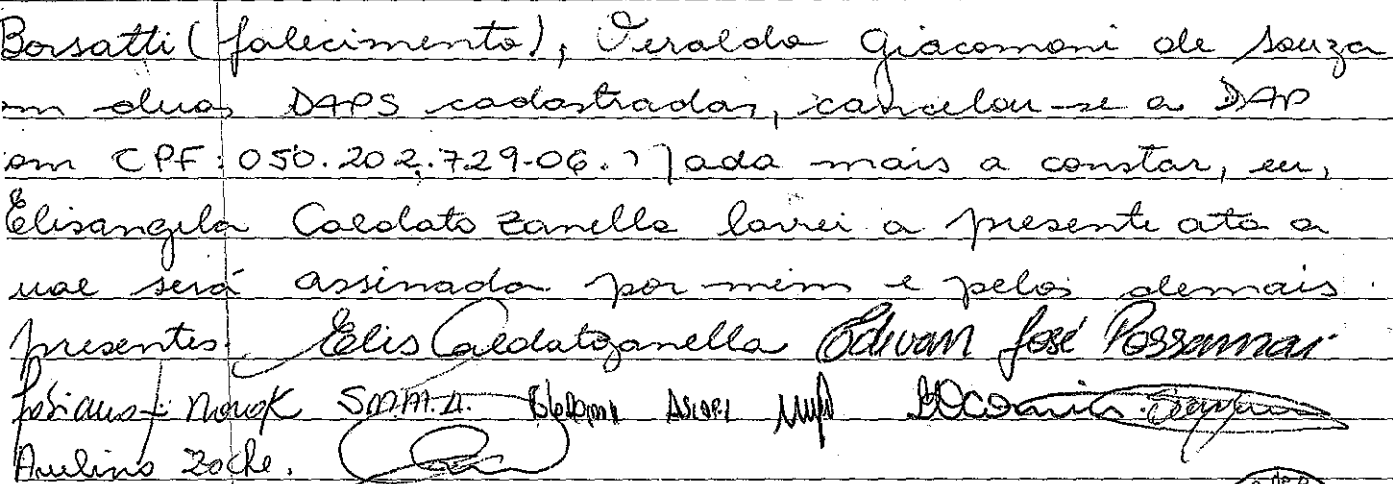 Borsatti (falecimento), Veralda Giacomoni de Souza
m duas DAPS cadastradas, cancelou-se a DAP
om CPF: 050.202.729-06. Nada mais a constar, eu,
Elisangela Caldato Zanella lavrei a presente ata a
ual será assinada por mim e pelos demais
presentes. Elis Caldato Zanella Edivan José Possamai
Novak
Avelino Zoche.